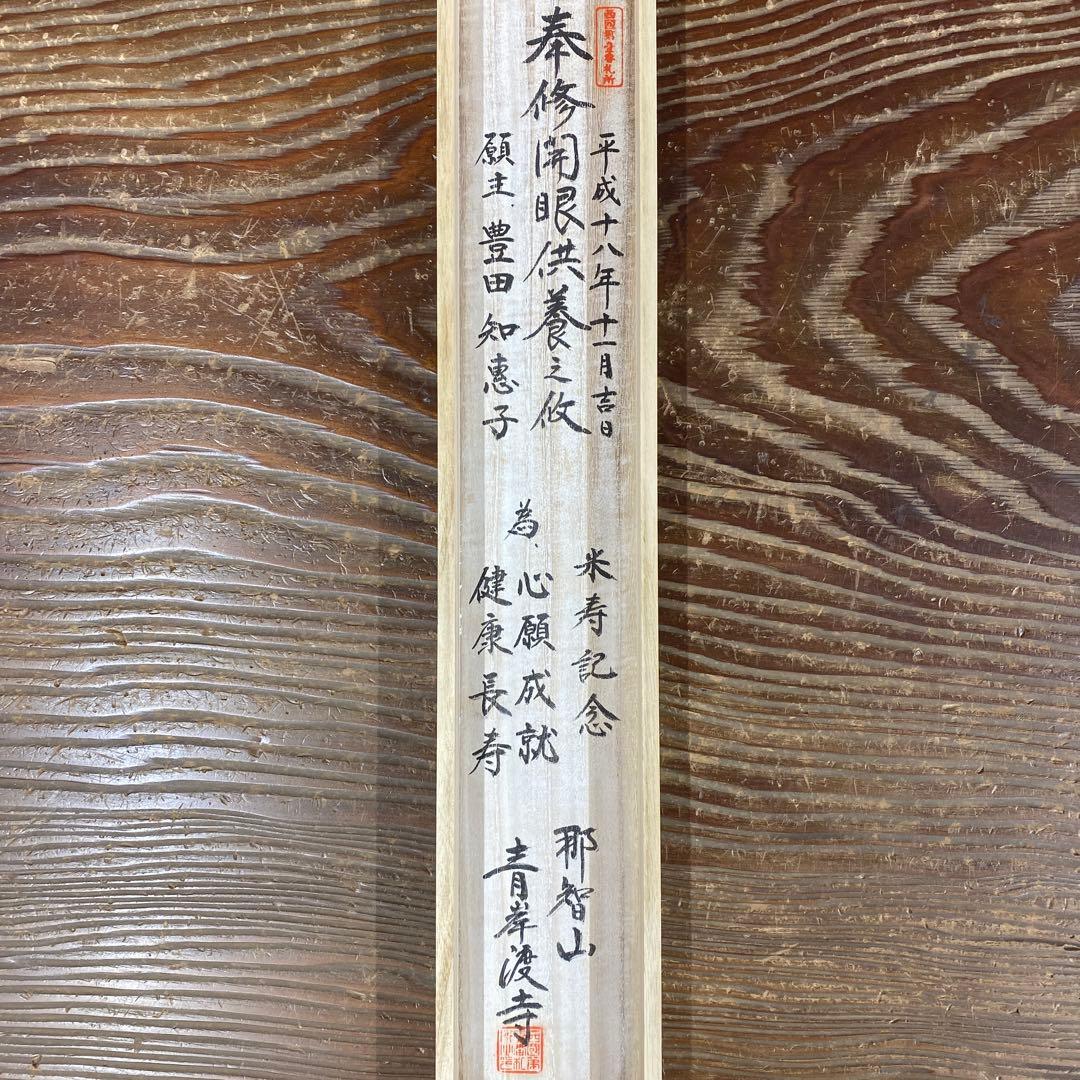 西国第壹番札所
平成十八年十一月吉日
奉修開眼供養之攸
願主、豊田知惠子
米寿記念
為、心願成就
健康長寿
那智山
青岸渡寺